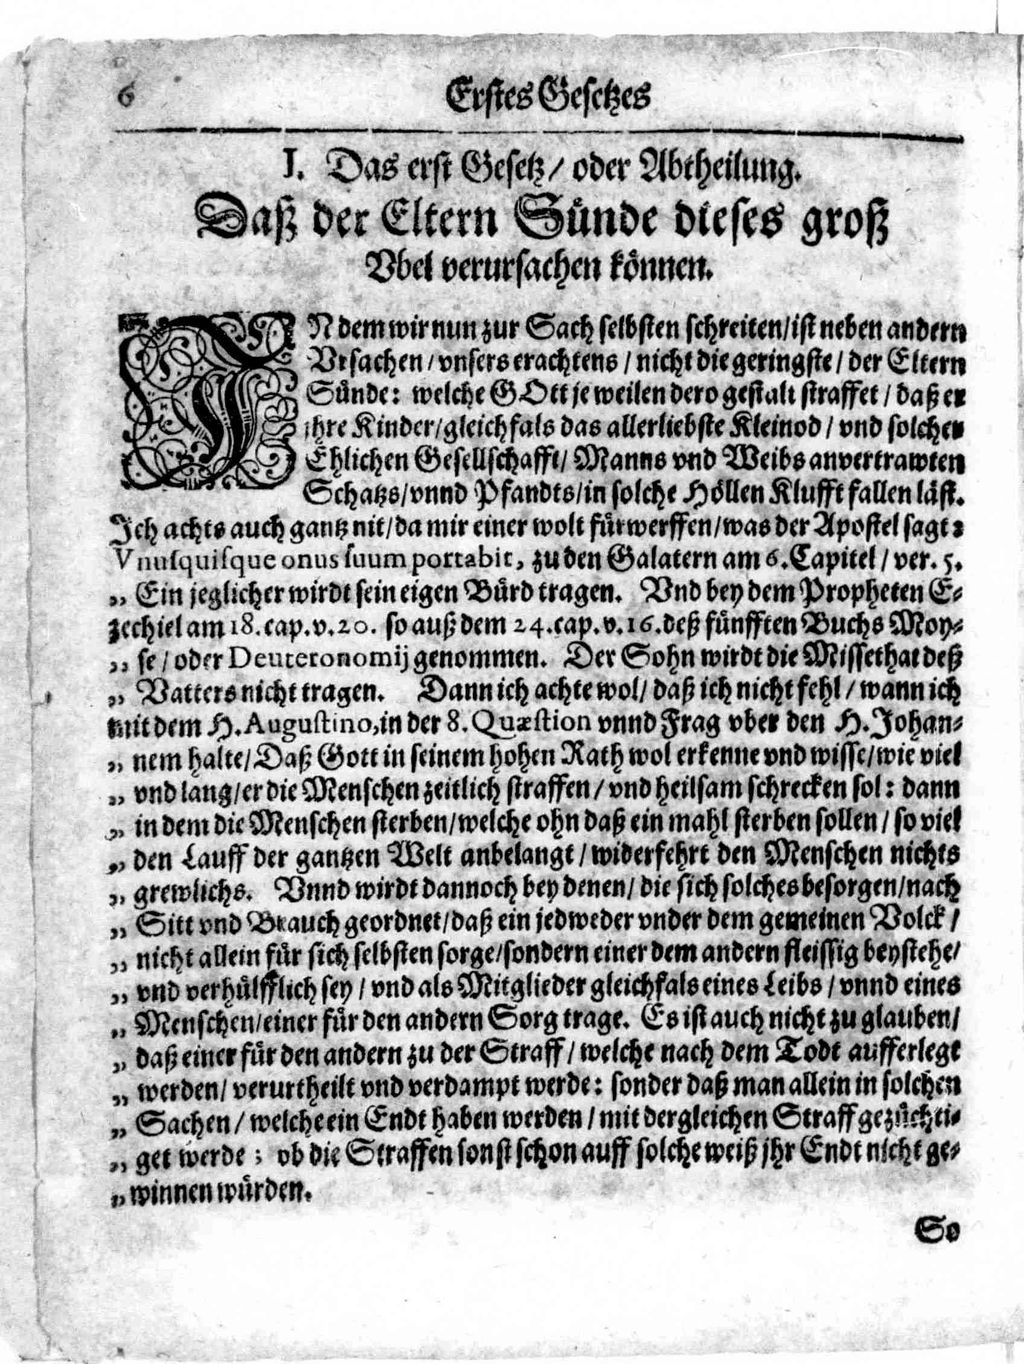 6 Erstes Gesetzes
I. Das erst Gesetz/ oder Abtheilung.
Daß der Eltern Sünde dieses groß
Vbel verursachen können.
IN dem wir nun zur Sach selbsten schreiten/ist neben andern
Vrsachen/vnsers erachtens/nicht die geringste/der Eltern
Sünde: welche GOtt je weilen dero gestalt straffet/daß er
jhre Kinder/gleichfals das allerliebste Kleinod/vnd solcher
Ehlichen Gesellschafft/Manns vnd Weibs anvertrawten
Schatzs/vnnd Pfandts/in solche Höllen Klufft fallen läst.
Ich achts auch gantz nit/da mir einer wolt fürwerffen/was der Apostel sagt:
Vnusquisque onus suum portabit, zu den Galatern am 6.Capitel/ver. 5.
„ Ein jeglicher wirdt sein eigen Bürd tragen. Vnd bey dem Propheten E-
zechiel am 18.cap.v.20. so auß dem 24.cap.v.16.deß fünfften Buchs Moy-
„ se/oder Deuteronomij genommen. Der Sohn wirdt die Missethat deß
„ Vatters nicht tragen. Dann ich achte wol/daß ich nicht fehl/wann ich
mit dem H.Augustino,in der 8.Quæstion vnnd Frag vber den H.Johan-
„ nem halte/Daß Gott in seinem hohen Rath wol erkenne vnd wisse/wie viel
„ vnd lang/er die Menschen zeitlich straffen/vnd heilsam schrecken sol: dann
„ in dem die Menschen sterben/welche ohn daß ein mahl sterben sollen/so viel
„ den Lauff der gantzen Welt anbelangt/widerfehrt den Menschen nichts
„ grewlichs. Vnnd wirdt dannoch bey denen/die sich solches besorgen/nach
„ Sitt vnd Brauch geordnet/daß ein jedweder vnder dem gemeinen Volck/
„ nicht allein für sich selbsten sorge/sondern einer dem andern fleissig beystehe/
„ vnd verhülfflich sey/vnd als Mitglieder gleichfals eines Leibs/vnnd eines
„ Menschen/einer für den andern Sorg trage. Es ist auch nicht zu glauben/
„ daß einer für den andern zu der Straff/welche nach dem Todt aufferlegt
„ werden/verurtheilt vnd verdampt werde: sonder daß man allein in solchen
„ Sachen/welche ein Endt haben werden/mit dergleichen Straff gezüchti-
„ get werde; ob die Straffen sonst schon auff solche weiß jhr Endt nicht ge-
„ winnen würden.
So